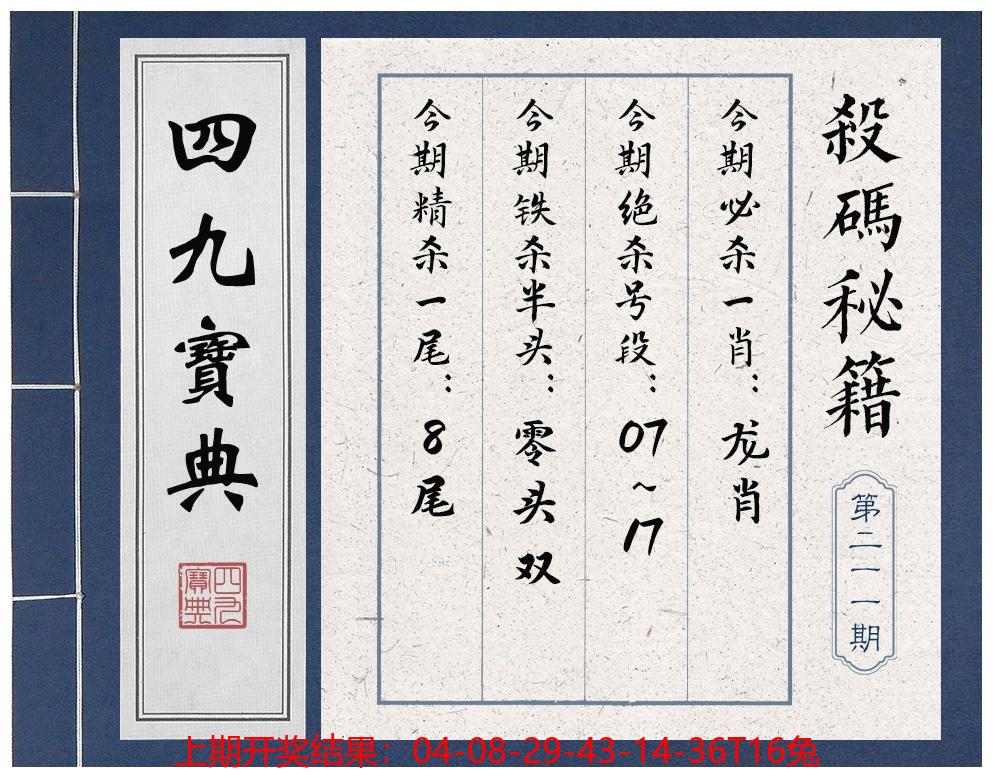 殺碼秘籍
第二一一期
今期必杀一肖：龙肖
今期绝杀号段：07~17
今期铁杀半头：零头双
今期精杀一尾：8尾
四九寶典
四九寶典
上期开奖结果：04-08-29-43-14-36T16兔